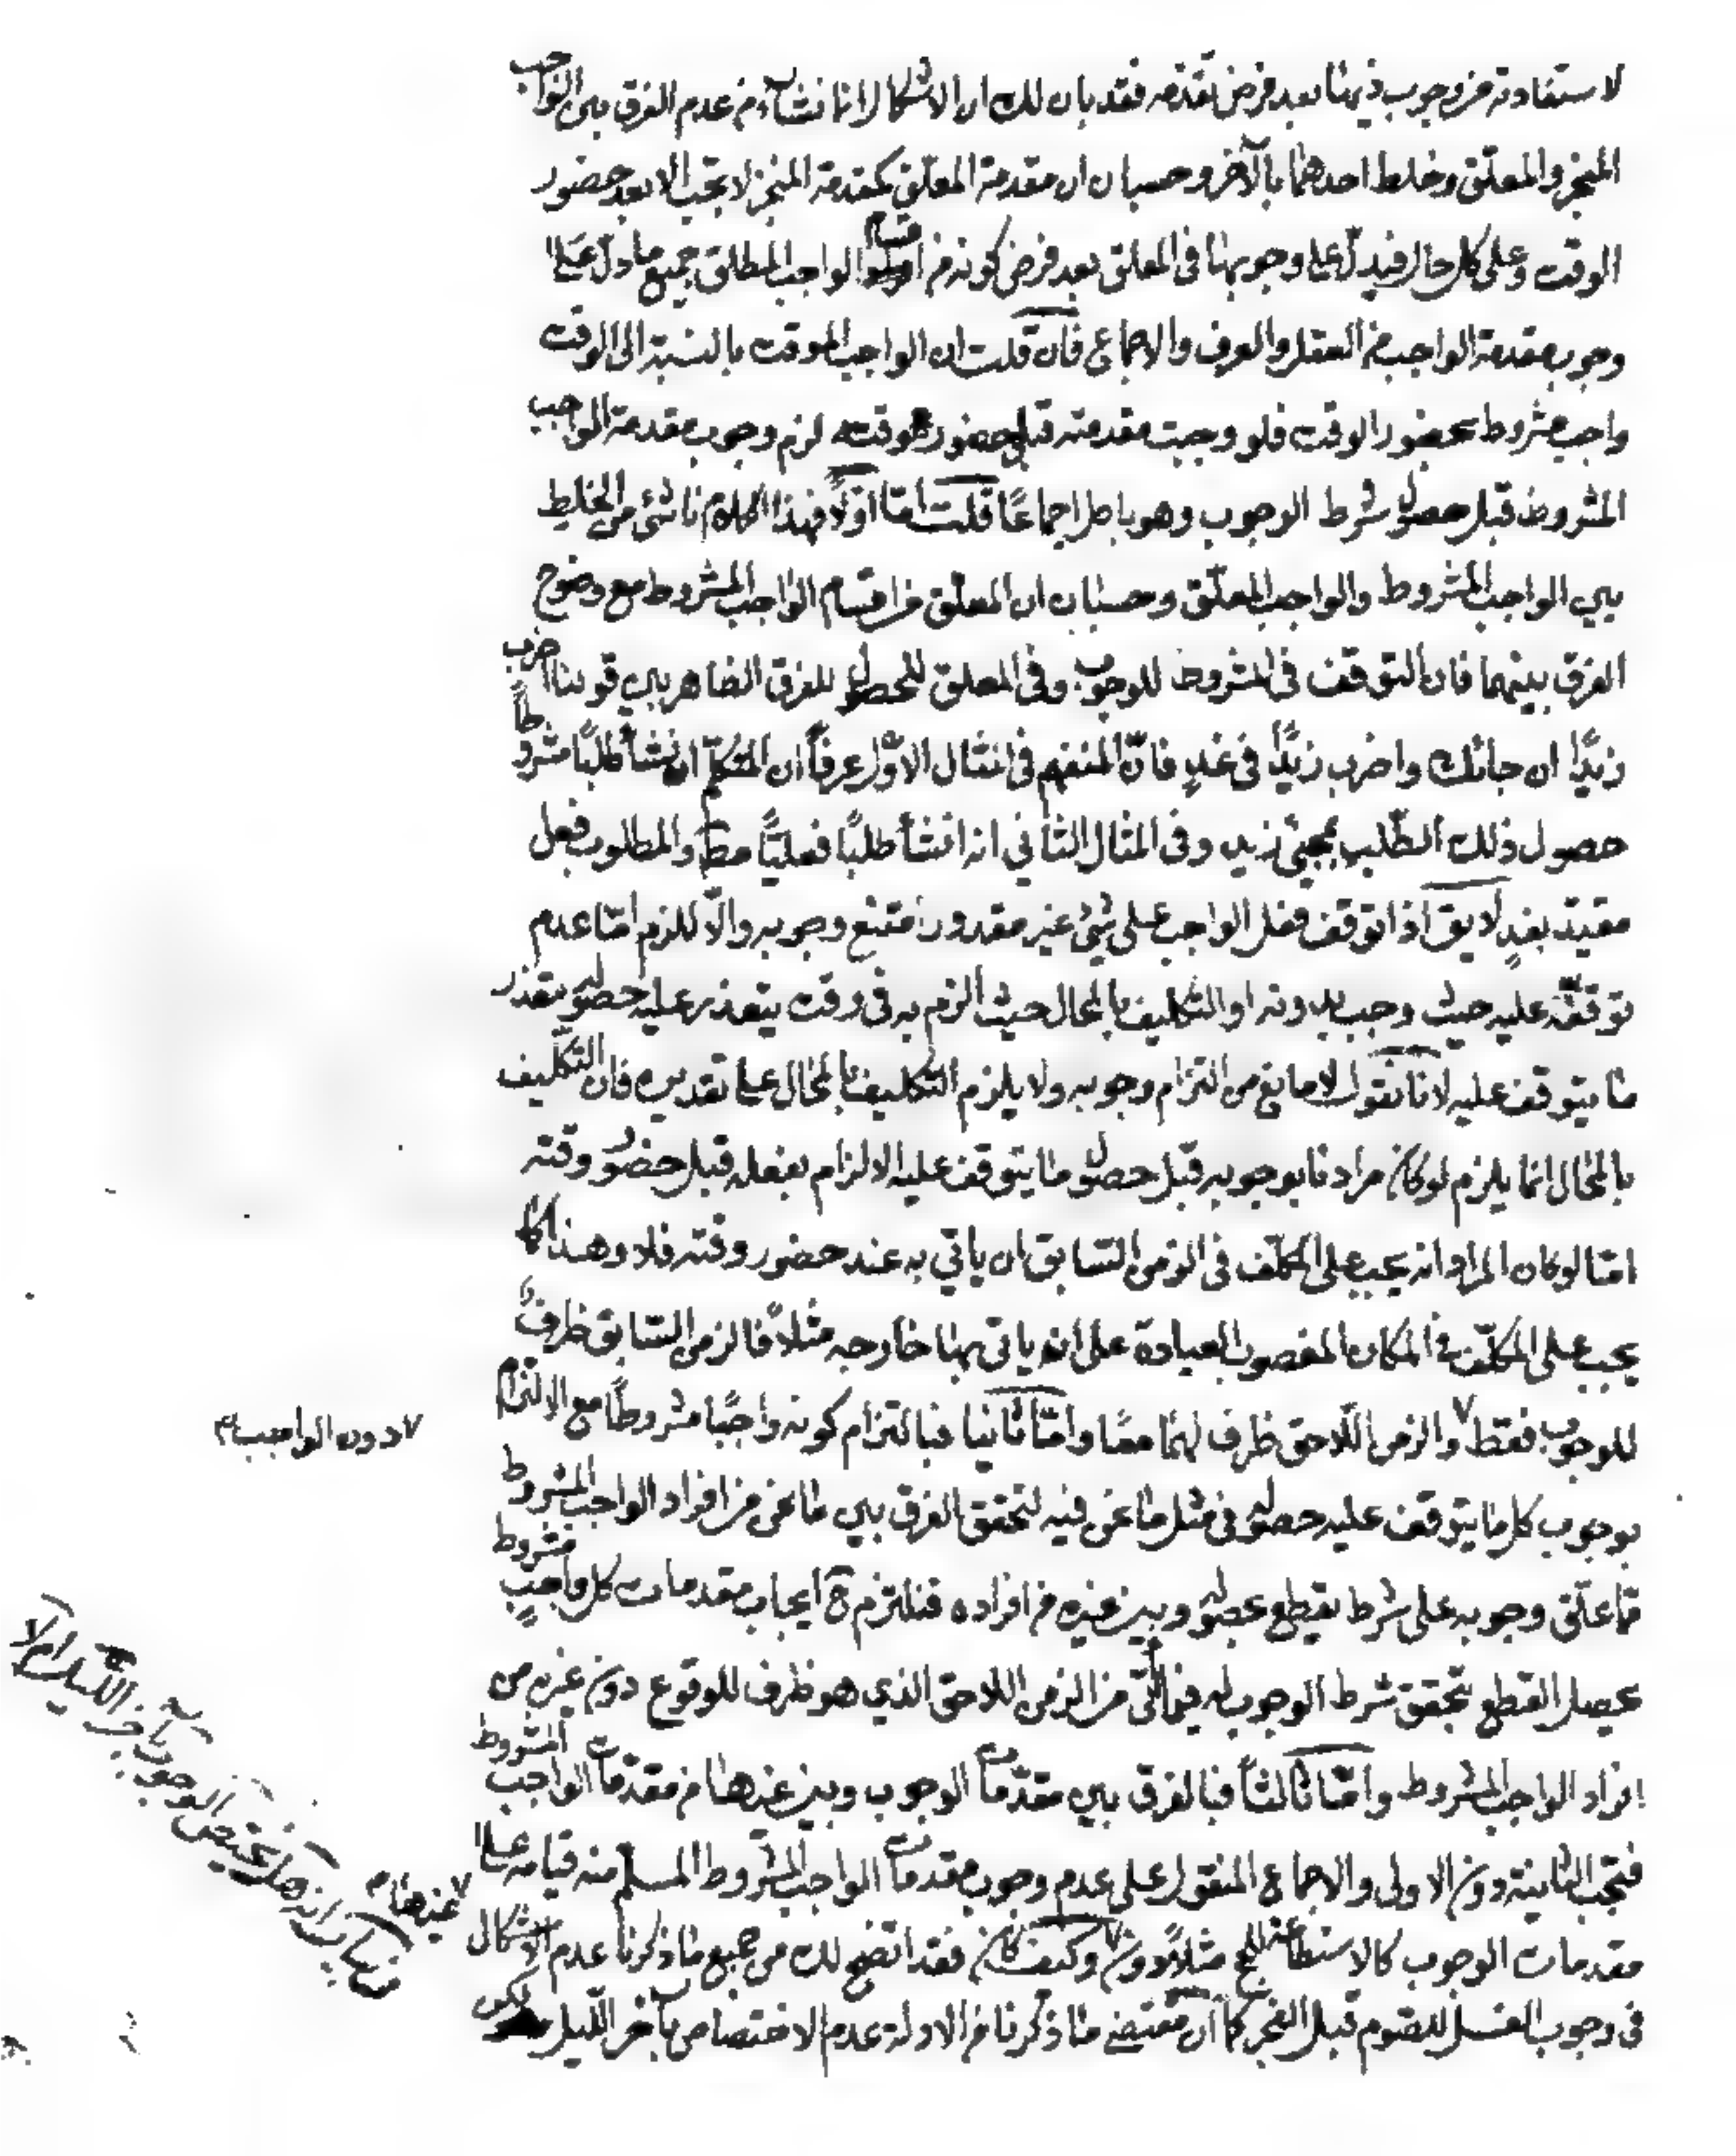 لاستفادته من وجوب ذيها بعد فرض تقدمه فقد بان لك ان الاشكال انما نشاء من عدم الفرق بين الواجب
المنجز والمعلّق وخلط احدهما بالآخر وحسبان ان مقدمة المعلّق كمقدمة المنجز لا تجب الا بعد حضور
الوقت وعلى كل حال فيدلّ على وجوبها فى المعلق بعد فرض كونه من اقسام الواجب المطلق جميع ما دلّ على
وجوب مقدمة الواجب من العقل والعرف والاجماع فان قلت ان الواجب الموقت بالنسبة الى الوقت
واجب مشروط بحضور الوقت فلو وجبت مقدمته قبل حضور وقته لزم وجوب مقدمة الواجب
المشروط قبل حصول شرط الوجوب وهو باطل اجماعًا قلت امّا اوّلاً فهذا الكلام ناشئ من الخليط
بين الواجب المشروط والواجب المعلّق وحسبان ان المعلّق من اقسام الواجب المشروط مع وضوح
الفرق بينهما فان التوقف فى المشروط للوجوب وفى المعلق للحصول للفرق الظاهر بين قولنا اضرب
زيدًا ان جائك واضرب زيدًا فى غدٍ فانّ المنفهم فى المثال الاوّل عرفاً ان المتكلّم انشأ طلبًا مشروطاً
حصول ذلك الطّلب بمجئ زيد وفى المثال الثانى انه انشأ طلبًا فعليًّا مط والمطلوب فعل
مقيّد بغدٍ لا يق اذا توقف فعل الواجب على شئ غير مقدور امتنع وجوبه والّا للزم امّا عدم
توقفه عليه حيث وجب بدونه او التكليف بالمحال حيث الزم به فى وقت يتعذر عليه حصوله بتعذر
ما يتوقف عليه لانا نقول لا مانع من التزام وجوبه ولا يلزم التكليف بالمحال على تقديره فان التكليف
بالمحال انما يلزم لو كان مرادنا بوجوبه قبل حصول ما يتوقف عليه الالزام بفعله قبل حضور وقته
امّا لو كان المراد انه يجب على المكلّف فى الزمن السّابق ان ياتي به عند حضور وقته فلا وهذا كما
يجب على المكلّف فى المكان المغصوب العبادة على ان ياتى بها خارجه مثلاً فالزمن السّابق ظرف
للوجوب فقط ٧ والزمن اللّاحق ظرف لهما معًا وامّا ثانيا فبالتزام كونه واجبًا مشروطاً مع الالتزام
٧ دون الواجب م
بوجوب كل ما يتوقف عليه حصوله فى مثل ما نحن فيه لتحقق الفرق بين ما نحن من افراد الواجب المشروط
مما علّق وجوبه على شرط يقطع بحصوله وبين غيره من افراده فنلتزم ح ايجاب مقدمات كل واجب مشروط
يحصل القطع بتحقق شرط الوجوب له فيما ياتى من الزمن اللاحق الذي هو ظرف للوقوع دون غيره من
افراد الواجب المشروط وامّا ثالثاً فبالفرق بين مقدّمات الوجوب وبين غيرها من مقدّمات الواجب المشروط
فتجب الثانية دون الاولى والاجماع المنقول على عدم وجوب مقدمات الواجب المشروط المسلم منه قيامه على
مقدمات الوجوب كالاستطاعة للحج مثلاً دون ٧ وكيف كان فقد اتضح لك من جميع ما ذكرنا عدم الاشكال
٧ غيرها م
فى وجوب الغسل للصوم قبل الفجر كما ان مقتضى ما ذكرنا من الادلة عدم الاختصاص بآخر الليل لكن
فى بيان انه هل يختص الوجوب بآخر الليل ام لا